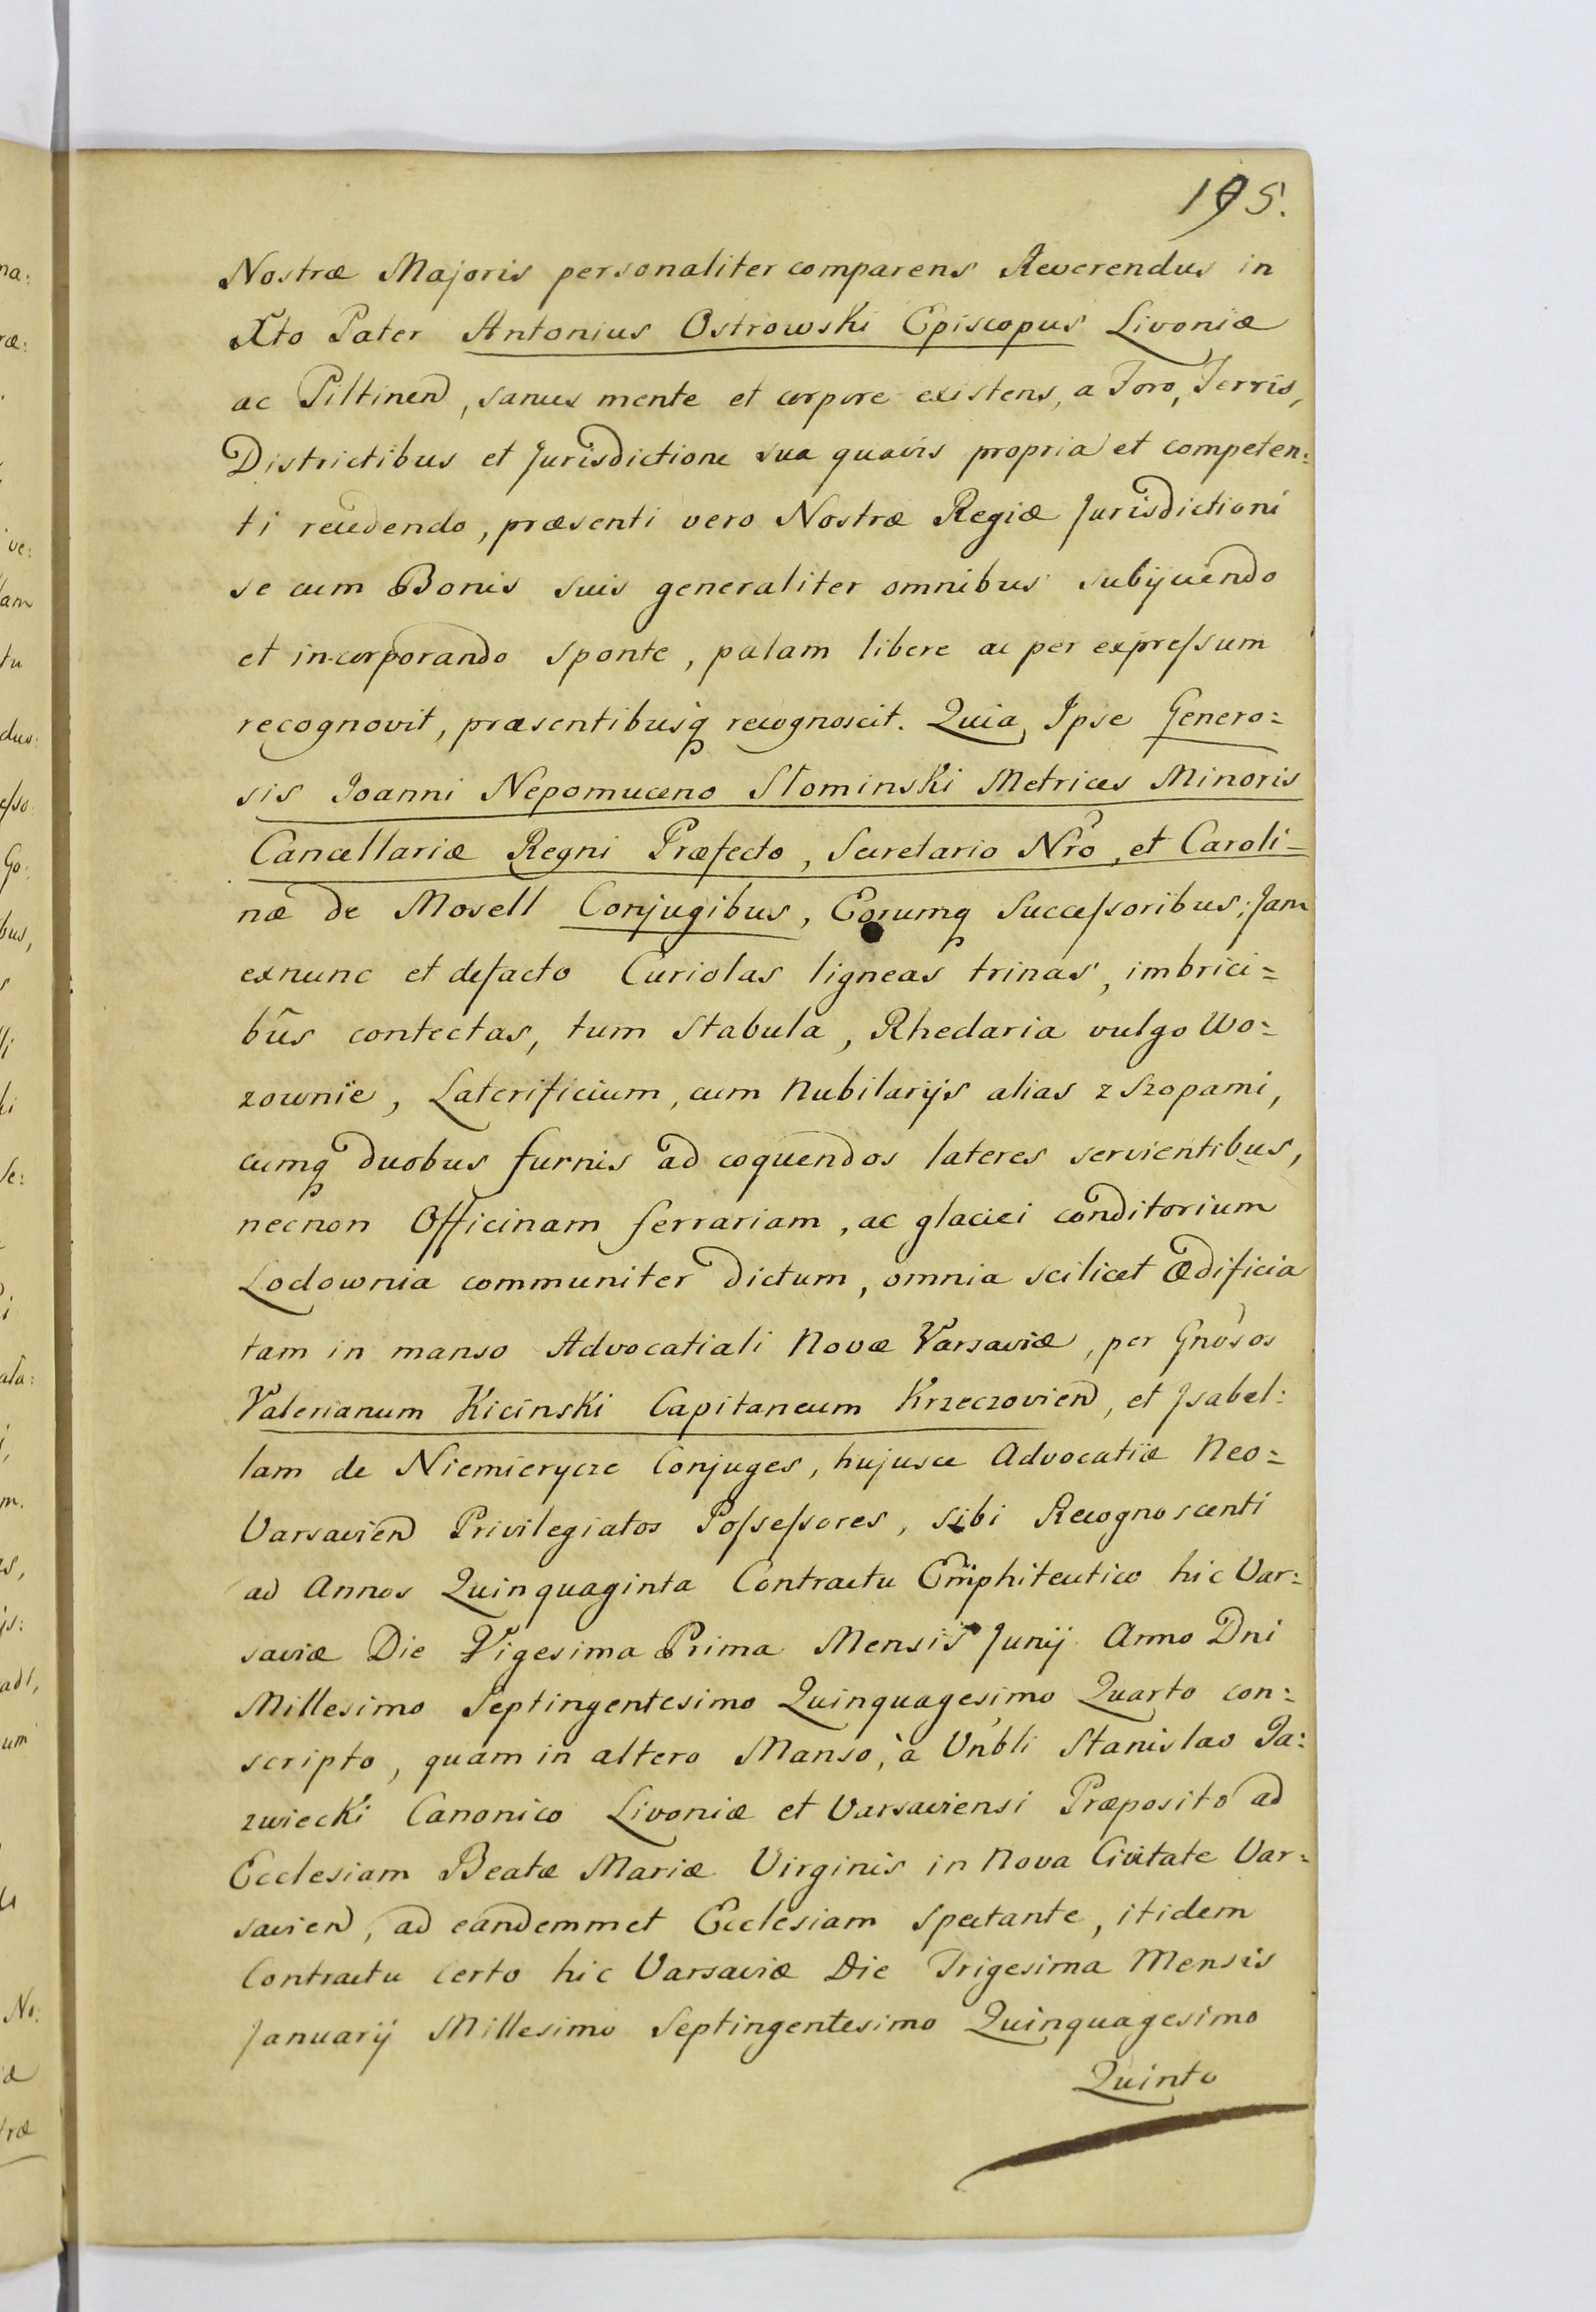 195.
Nostræ Majoris personaliter comparens Reverendus in
Xto Pater Antonius Ostrowski Episcopus Livoniæ
ac Piltinen, sanus mente et corpore existens, a Foro, Terris,
Districtibus et Jurisdictione sua quavis propria et competen:
ti recedendo, præsenti vero Nostræ Regiæ Jurisdictioni
se cum Bonis suis generaliter omnibus subijciendo
et incorporando sponte, palam libere ac per expressum
recognovit, præsentibusq recognoscit. Quia Ipse Genero:
sis Joanni Nepomuceno Słominski Metrices Minoris
Cancellariæ Regni Præfecto, Secretario Nro, et Caroli=
næ de Mosell Conjugibus, Eorumq Successoribus; Jam
exnunc et defacto Curiolas ligneas trinas, imbrici=
bus contectas, tum Stabula, Rhedaria vulgo Wo=
zownie, Laterificium, cum Nubilarijs alias z Szopami,
cumq duobus furnis ad coquendos lateres servientibus,
necnon Officinam ferrariam, ac glaciei conditorium
Lodownia communiter dictum, omnia scilicet Ædificia
tam in manso Advocatiali Novæ Varsaviæ, per Gnosos
Valerianum Kicinski Capitaneum Krzeczovien, et Jsabel:
lam de Niemierycze Conjuges, hujusce Advocatiæ Neo=
Varsavien Privilegiatos Possessores, sibi Recognoscenti
ad Annos Quinquaginta Contractu Emphiteutico hic Var:
saviæ Die Vigesima Prima Mensis Junij Anno Dni
Millesimo Septingentesimo Quinquagesimo Quarto con:
scripto, quam in altero Manso, à Vnbli Stanislao Ja:
zwiecki Canonico Livoniæ et Varsaviensi Præposito ad
Ecclesiam Beatæ Mariæ Virginis in Nova Civitate Var:
savien, ad eandemmet Ecclesiam spectante, itidem
Contractu certo hic Varsaviæ Die Trigesima Mensis
Januarij Millesimo Septingentesimo Quinquagesimo
Quinto